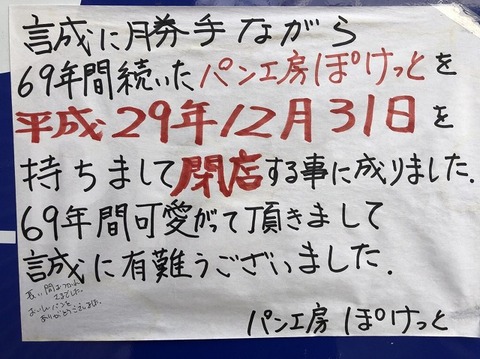 誠に勝手ながら
69年間続いたパン工房ぽけっとを
平成29年12月31日を
持ちまして閉店する事に成りました.
69年間可愛がって頂きまして
誠に有難うございました.
おいしいパンを
ありがとうございました。
パン工房 ぽけっと